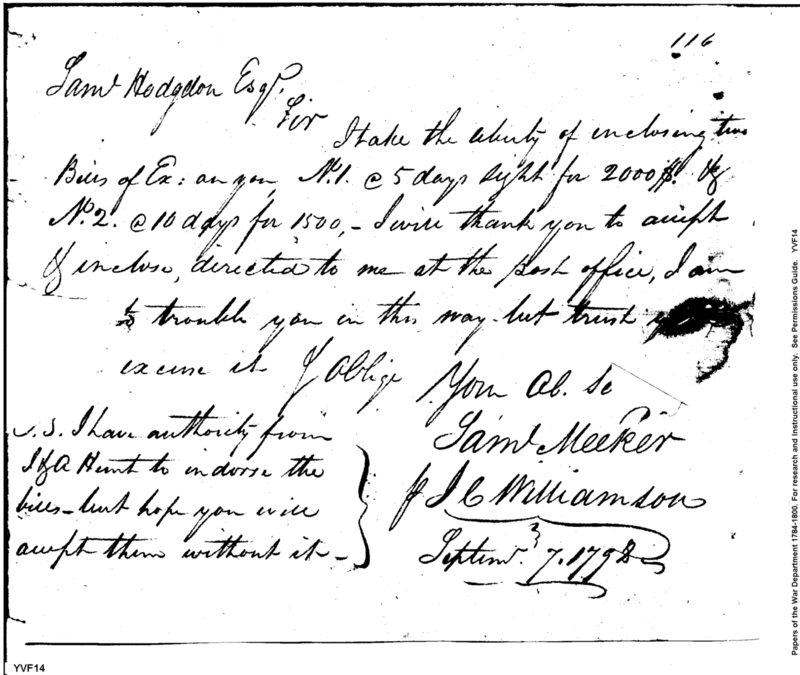 116
Saml. Hodgdon Esqr.
Sir
I take the liberty of inclosing two
Bills of Ex: on you, No.1. @ 5 days sight for 2000$. &
No.2. @ 10 days for 1500,- I will thank you to accept
& inclose, directed to me at the post office, I am
to trouble you in this way but trust
excuse it & Oblige
Your Ob. Se
Saml. Meeker
J C Williamson
Septemr. 7. 1798
P.S. I have authority from
J & A Hunt to indorse the
bills - but hope you will
accept them without it -
YVF14
Papers of the War Department 1784-1800. For research and instructional use only. See Permissions Guide. YVF14